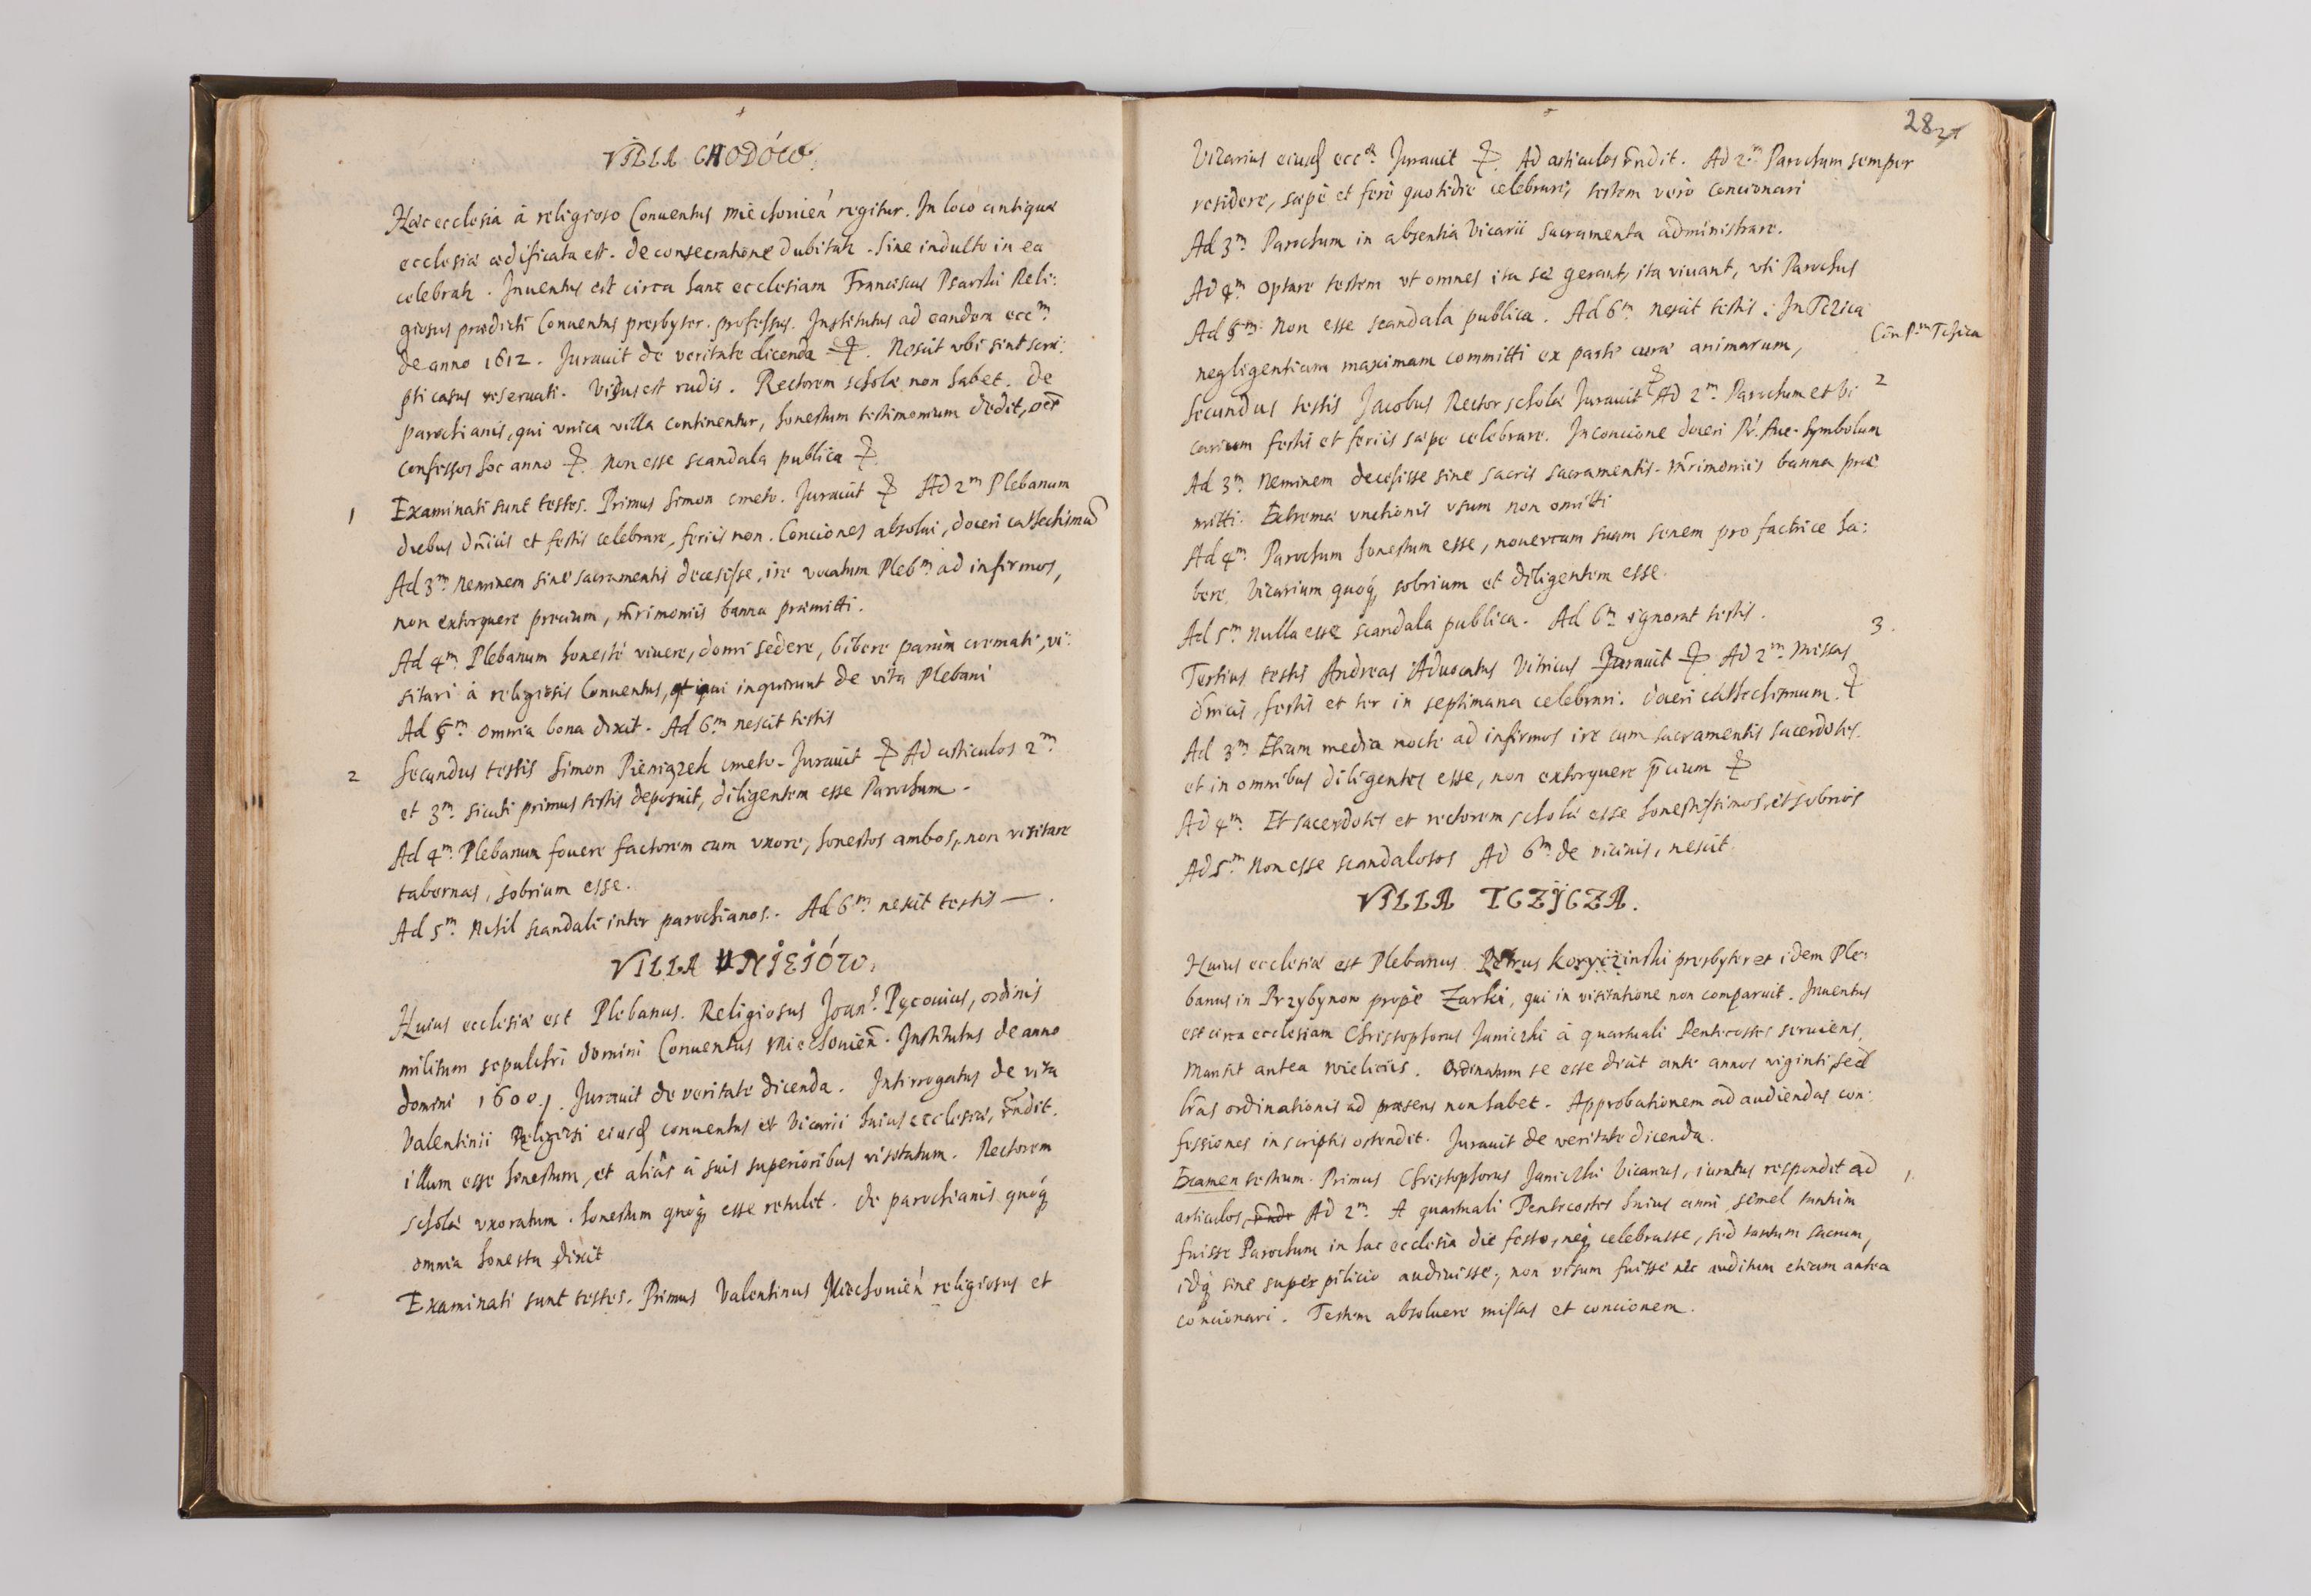 VILLA CHODÓW.
Hæc ecclesia à religioso Conuentus Miechouien̄ regitur. In loco antiquæ
ecclesiæ ædificata est. de consecratione dubitatr. Sine indulto in ea
celebratr. Inuentus est circa hanc ecclesiam Franciscus Psarski Reli:
giosus prædicti Conuentus presbyter. professus. Institutus ad eandem eccm
de anno 1612. Jurauit de veritate dicenda ☩. Nescit vbi sint scri:
pti casus reseruati. Visus est rudis. Rectorem scholæ non habet. De
parochianis, qui vnica villa continentur, honestum testimonium dedit, oēs
confessos hoc anno ☩. non esse scandala publica ☩.
1 Examinati sunt testes. Primus Simon cmeto. Jurauit ☩ Ad 2m Plebanum
diebus dn̄icis et festis celebrare, feriis non. Conciones absolui, doceri cathechismū
Ad 3m. Neminem sine sacramentis decessisse, ire vocatum Plebm. ad infirmos,
non extorquere precium, mr̄imoniis banna præmitti.
Ad 4m. Plebanum honestè viuere, domi sedere, bibere parùm cremati, vi:
sitari à religiosis Conuentus, qui inquirunt de vita Plebani
Ad 5m. omnia bona dixit. Ad 6m nescit testis
2 Secundus testis Simon Pieniązek cmeto. Jurauit ☩ Ad articulos 2m
et 3m. sicuti primus testis deposuit, diligentem esse Parochum.
Ad 4m. Plebanum fouere factorem cum vxore, honestos ambos, non visitare
tabernas, sobrium esse.
Ad 5m. Nihil scandali inter parochianos. Ad 6m. nescit testis —.
VILLA UNIEIÓW.
Huius ecclesiæ est Plebanus. Religiosus Joans. Pęcouius, ordinis
militum sepulchri Domini Conuentus Miechouien̄. Institutus de anno
domini 1600.j. Jurauit de veritate dicenda. Interrogatus de vita
Valentinii Religiosi eiusdē conuentus et Vicarii huius ecclesiæ, rn̄dit.
illum esse honestum, et aliàs à suis superioribus visitatum. Rectorem
scholæ vxoratum. honestum quoq́ esse retulit. De parochianis quoq́
omnia honesta dixit
Examinati sunt testes. Primus Valentinus Miechouien̄ religiosus et
28 27
Vicarius eiusdē eccæ. Jurauit ☩. Ad articulos rn̄dit. Ad 2m. Parochum semper
residere, sæpè et ferè quotidie celebrare, testem verò concionari
Ad 3m. Parochum in absentia Vicarii sacramenta administrare.
Ad 4m. optare testem vt omnes ita se gerant, ita viuant, vti Parochus
Ad 5m. Non esse scandala publica. Ad 6m. nescit testis. In Tczica
Con̄ P.m Tczica
negligentiam maximam committi ex parte curæ animarum,
Secundus testis Jacobus Rector scholæ Jurauit ☩ Ad 2m. Parochum et Vi 2
carium festis et feriis sæpe celebrare. In concione doceri Pr̄. Aue. Symbolum
Ad 3m. Neminem decessisse sine sacris sacramentis. mr̄imoniis banna præ
mitti. Extremæ vnctionis vsum non omitti
Ad 4m. Parochum honestum esse, nouercam suam senem pro factrice ha:
bere, Vicarium quoq́ sobrium et diligentem esse.
Ad 5m. Nulla esse scandala publica. Ad 6m. ignorat testis.
3.
Tertius testis Andreas Aduocatus Vitricus Jurauit ☩ Ad 2m. Missas
dn̄icis, festis et ter in septimana celebrari. Doceri cathechismum. ☩
Ad 3m. Etiam media nocte ad infirmos ire cum sacramentis sacerdotes.
et in omnibus diligentes esse, non extorquere p̄cium ☩
Ad 4m. Et sacerdotes et rectorem scholæ esse honestissimos, et sobrios
Ad 5m. Non esse scandalosos Ad 6m. de vicinis, nescit.
VILLA TCZICZA.
Huius ecclesiæ est Plebanus Petrus Koryciński presbyter et idem Ple:
banus in Przybynow propè Zarki, qui in visitatione non comparuit. Inuentus
est circa ecclesiam Christophorus Janiczki à quartuali Pentecostes seruiens,
Mansit antea Wieliciis. Ordinatum se esse dicit ante annos viginti sed
lr̄as ordinationis ad præsens non habet. Approbationem ad audiendas con:
fessiones in scriptis ostendit. Jurauit de veritate dicenda.
Examen testium. Primus Christophorus Janiczki Vicarius, iuratus respondit ad 1.
articulos, rn̄dt Ad 2m. A quartuali Pentecostes huius anni, semel tantùm
fuisse Parochum in hac ecclesia die festo, neq́ celebrasse, sed tantum sacrum,
idq́ sine superpilicio audiuisse; non visum fuisse nec auditum etiam antea
concionari. Testem absoluere missas et concionem.